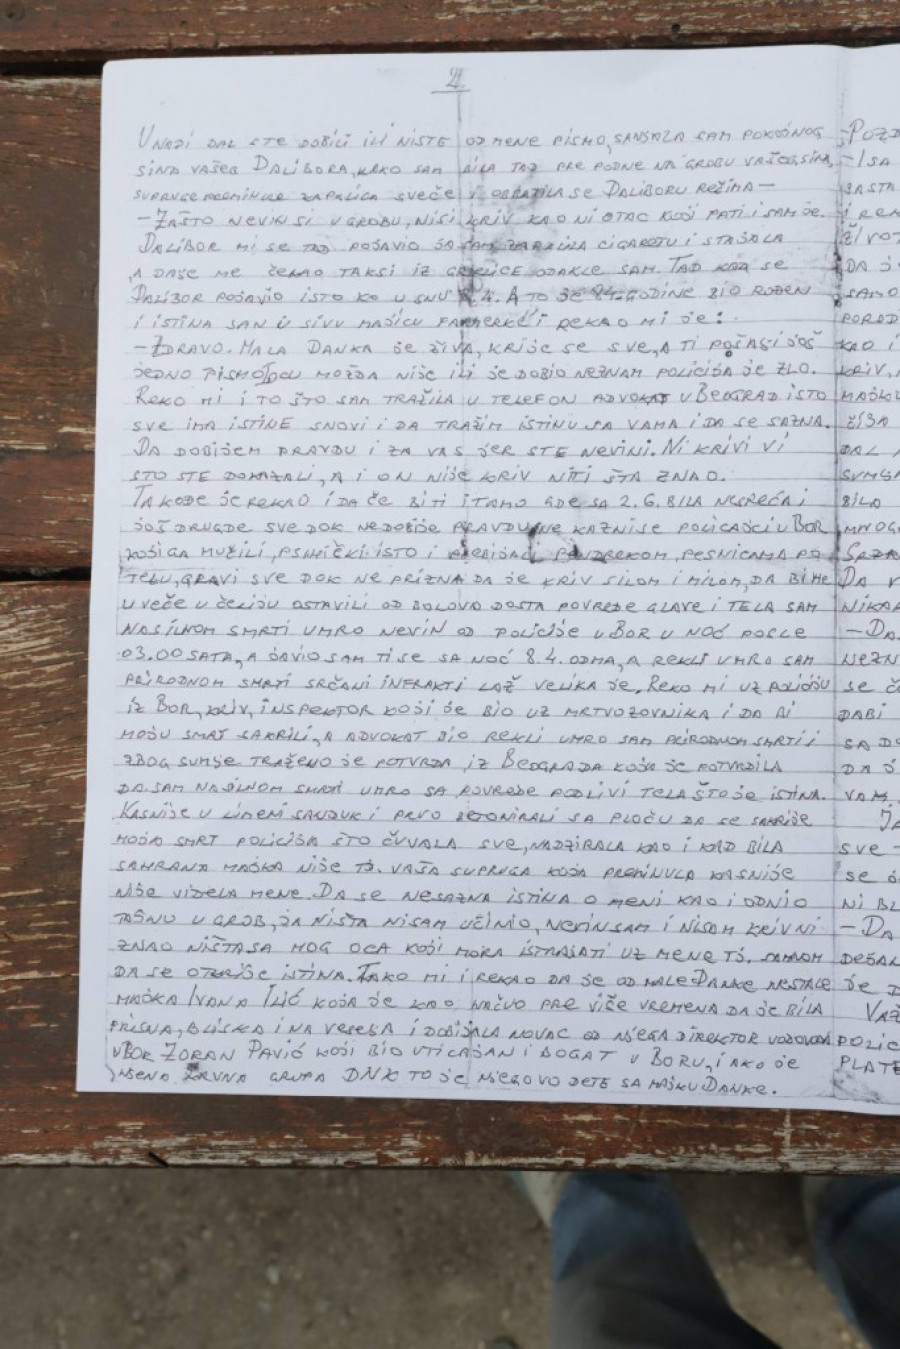 2.
UNADI DAL STE DOBILI ILI NISTE OD MENE PISMO, SANJALA SAM POKOJNOG -POZD
SINA VAŠEG DALIBORA, KAKO SAM BILA TAD PRE PODNE NA GROBU VAŠEG SINA, -I SA
SUPRUGE PREMINULE ZAPALILA SVEČE I OBRATILA SE DALIBORU REČIMA- JA STA
-ZAŠTO NEVIN SI U GROBU, NISI KRIV KAO NI OTAC KOJI PATI I SAM JE. I REK
DALIBOR MI SE TAD POJAVIO JA SAM ZAPALILA CIGARETU I STAJALA ŽIVOT
A DA SE ME ČEKAO TAKSI IZ GRLJICE ODAKLE SAM. TAD KAD SE DA J
DALIBOR POJAVIO ISTO KO U SNU 8.4. A TO JE 84. GODINE BIO ROĐEN SAMO
I ISTINA SAN U SIVU MAJICU FARMERKE I REKAO MI JE: POROD
-ZDRAVO. MALA DANKA JE ŽIVA, KRIJE SE SVE, A TI POŠALJI JOŠ KAO I
JEDNO PISMO OCU MOŽDA NIJE ILI JE DOBIO NEZNAM POLICIJA JE ZLO. KRIV,
REKO MI I TO ŠTO SAM TRAŽILA U TELEFON ADVOKAT U BEOGRAD ISTO MAJKU
SVE IMA ISTINE SNOVI I DA TRAŽIM ISTINU SA VAMA I DA SE SAZNA.
DA DOBIJEM PRAVDU I ZA VAS JER STE NEVINI. NI KRIVI VI DAL
STO STE DOKAZALI, A I ON NIJE KRIV NITI ŠTA ZNAO. SUMNJ
TAKOĐE JE REKAO I DA ĆE BITI I TAMO GDE SA 2.6. BILA NESREĆA I BILO
JOŠ DRUGDE SVE DOK NE DOBIJE PRAVDU, NE KAZNI SE POLICAJCI U BOR MNOG
KOJI GA MUČILI, PSIHIČKI ISTO I UBIJALI PENDREKOM, PESNICAMA PO
TELU, GLAVI SVE DOK NE PRIZNA DA JE KRIV SILOM I MILOM, DA BI ME DA V
UVEČE U ĆELIJU OSTAVILI OD BOLOVA DOSTA POVREDE GLAVE I TELA SAM NIKA
NASILNOM SMRTI UMRO NEVIN OD POLICIJE U BOR U NOĆ POSLE -DA
03.00 SATA, A JAVIO SAM TI SE SA NOĆ 8.4. ODMA, A REKLI UMRO SAM NEZN
PRIRODNOM SMRTI SRČANI INFRAKTI LAŽ VELIKA JE. REKO MI UZ POLICIJU SE
IZ BOR, KRIV, INSPEKTOR KOJI JE BIO UZ MRTVOZOVNIKA I DA BI DA BI
MOJU SMRT SAKRILI, A ADVOKAT BIO REKLI UMRO SAM PRIRODNOM SMRTI I SA DO
ZBOG SUMNJE TRAŽENO JE POTVRDA, IZ BEOGRADA KOJA JE POTVRDILA DA J
DA SAM NASILNOM SMRTI UMRO SA POVREDE PODLIVI TELA ŠTO JE ISTINA. VAM
KASNIJE U LIMENI SANDUK I PRVO BETONIRALI SA PLOČU DA SE SAKRIJE JA
MOJA SMRT POLICIJA ŠTO ČUVALA SVE, NADZIRALA KAO I KAD BILA SVE -
SAHRANA MAJKA NIJE TJ. VAŠA SUPRUGA KOJA PREMINULA KASNIJE SE
NIJE VIDELA MENE. DA SE NESAZNA ISTINA O MENI KAO I ODNIO NI BL
TAJNU U GROB, JA NIŠTA NISAM UČINIO, NEVIN SAM I NISAM KRIV NI -DA
ZNAO NIŠTA SA MOG OCA KOJI MORA ISTRAJATI UZ MENE TJ. SAMNOM DEŠAN
DA SE OTKRIJE ISTINA. TAKO MI I REKAO DA JE OD MALE DANKE NESTALE JE
MAJKA IVANA ILIĆ KOJA JE KAO NAČUO PRE VIŠE VREMENA DA JE BILA VAŽ
PRISNA, BLISKA I NA VEZESA I DOBIJALA NOVAC OD NJEGA DIREKTOR VODOVODA POLIC
U BOR ZORAN PAVIĆ KOJI BIO UTICAJAN I BOGAT U BORU, I AKO JE PLATE
NJENA KRVNA GRUPA DNK TO JE NJEGOVO DETE SA MAJKU DANKE.